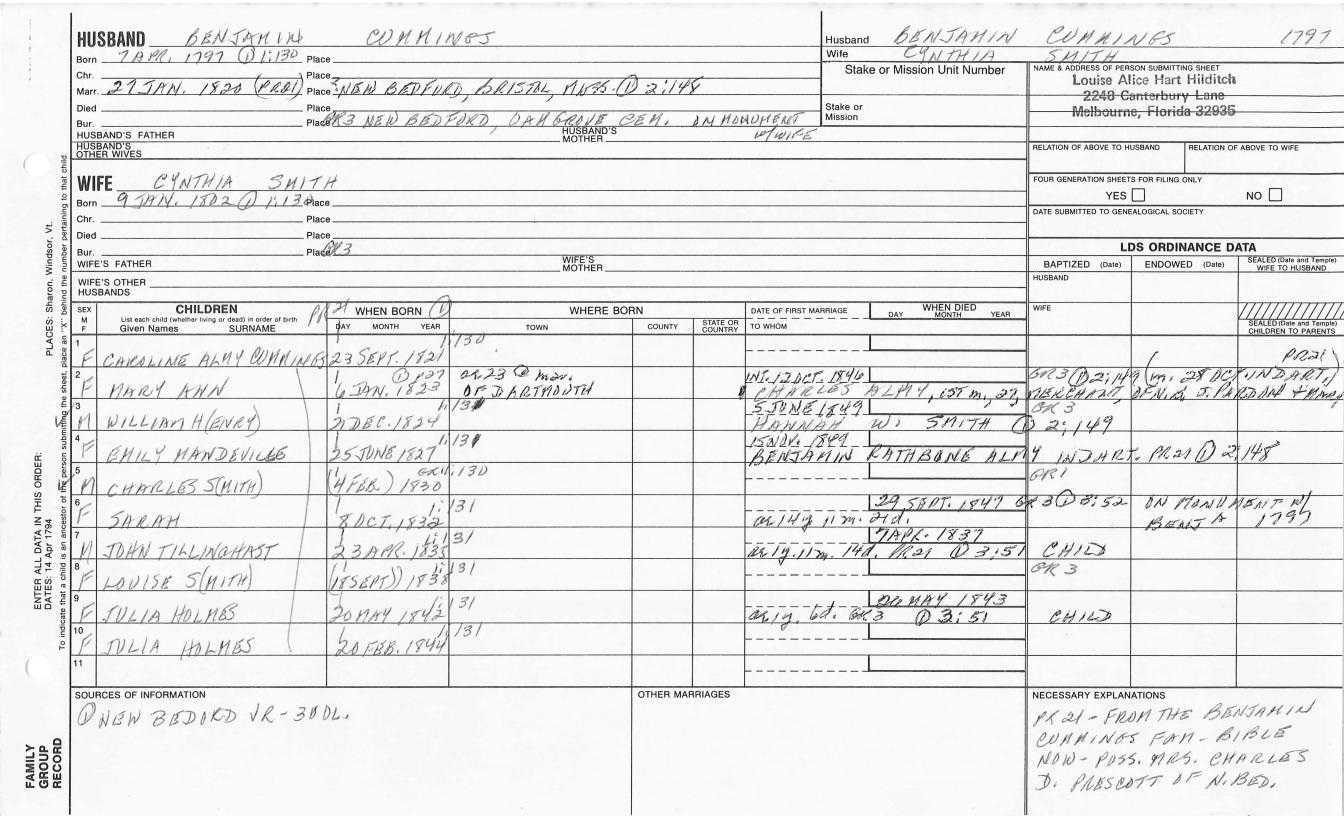 HUSBAND BENJAMIN CUMMINGS
Born 7 APR. 1797 ① 1:130 Place
Chr. Place
Marr. 27 JAN. 1820 (PR21) Place NEW BEDFORD, BRISTOL, MASS. ① 2:148
Died Place
Bur. Place GR3 NEW BEDFORD, OAK GROVE CEM. ON MONUMENT W/WIFE
HUSBAND'S FATHER HUSBAND'S MOTHER
HUSBAND'S OTHER WIVES
Husband BENJAMIN CUMMINGS 1797
Wife CYNTHIA SMITH
Stake or Mission Unit Number
Stake or Mission
NAME & ADDRESS OF PERSON SUBMITTING SHEET
Louise Alice Hart Hilditch
2248 Canterbury Lane
Melbourne, Florida 32935
RELATION OF ABOVE TO HUSBAND RELATION OF ABOVE TO WIFE
FOUR GENERATION SHEETS FOR FILING ONLY
YES NO
DATE SUBMITTED TO GENEALOGICAL SOCIETY
WIFE CYNTHIA SMITH
Born 9 JAN. 1802 ① 1:130 Place
Chr. Place
Died Place
Bur. Place GR3
WIFE'S FATHER WIFE'S MOTHER
WIFE'S OTHER HUSBANDS
LDS ORDINANCE DATA
BAPTIZED (Date) ENDOWED (Date) SEALED (Date and Temple) WIFE TO HUSBAND
HUSBAND
WIFE
SEALED (Date and Temple) CHILDREN TO PARENTS
SEX M F
CHILDREN
List each child (whether living or dead) in order of birth
Given Names SURNAME
PR 21 WHEN BORN ①
DAY MONTH YEAR
WHERE BORN
TOWN COUNTY STATE OR COUNTRY
DATE OF FIRST MARRIAGE
TO WHOM
WHEN DIED
DAY MONTH YEAR
1 F CAROLINE ALMY CUMMINGS 23 SEPT. 1821 1:130 PR21
2 F MARY ANN 6 JAN. 1823 ① OF DARTMOUTH INT. 12 OCT. 1846 GR3 ① 2:149 (m. 28 OCT. IN DART.)
CHARLES ALMY, 1ST m., 27, MERCHANT, OF N.B.
3 M WILLIAM H(ENRY) DEC. 1824 5 JUNE 1849 GR 3
HANNAH W. SMITH ① 2:149
4 F EMILY MANDEVILLE 25 JUNE 1827 15 NOV. 1849
BENJAMIN RATHBONE ALMY IN DART. PR21 ① 2:148
5 M CHARLES S(MITH) (4 FEB.) 1830 1:130 GR1
6 F SARAH 8 OCT. 1832 1:131 29 SEPT. 1847 GR 3 ① 3:52 ON MONUMENT W/ BENJ A 1797
ae 14y 11m. 21d.
7 M JOHN TILLINGHAST 23 APR. 1835 1:131 7 APR. 1837
ae 1y. 11m. 14d. PR21 ① 3:51 CHILD
8 F LOUISE S(MITH) (18 SEPT) 1838 1:131 GR 3
9 F JULIA HOLMES 20 MAY 1842 1:131 26 MAY 1843
ae 1y. 6d. GR3 ① 3:51 CHILD
10 F JULIA HOLMES 20 FEB. 1844 1:131
11
SOURCES OF INFORMATION
① NEW BEDORD VR-3VOL.
OTHER MARRIAGES
NECESSARY EXPLANATIONS
PR 21 - FROM THE BENJAMIN
CUMMINGS FAM - BIBLE
NOW - POSS. MRS. CHARLES
D. PRESCOTT OF N. BED.
PLACES: Sharon, Windsor, Vt.
ENTER ALL DATA IN THIS ORDER:
DATES: 14 Apr 1794
To indicate that a child is an ancestor of the person submitting the sheet, place an "X" behind the number pertaining to that child.
FAMILY GROUP RECORD